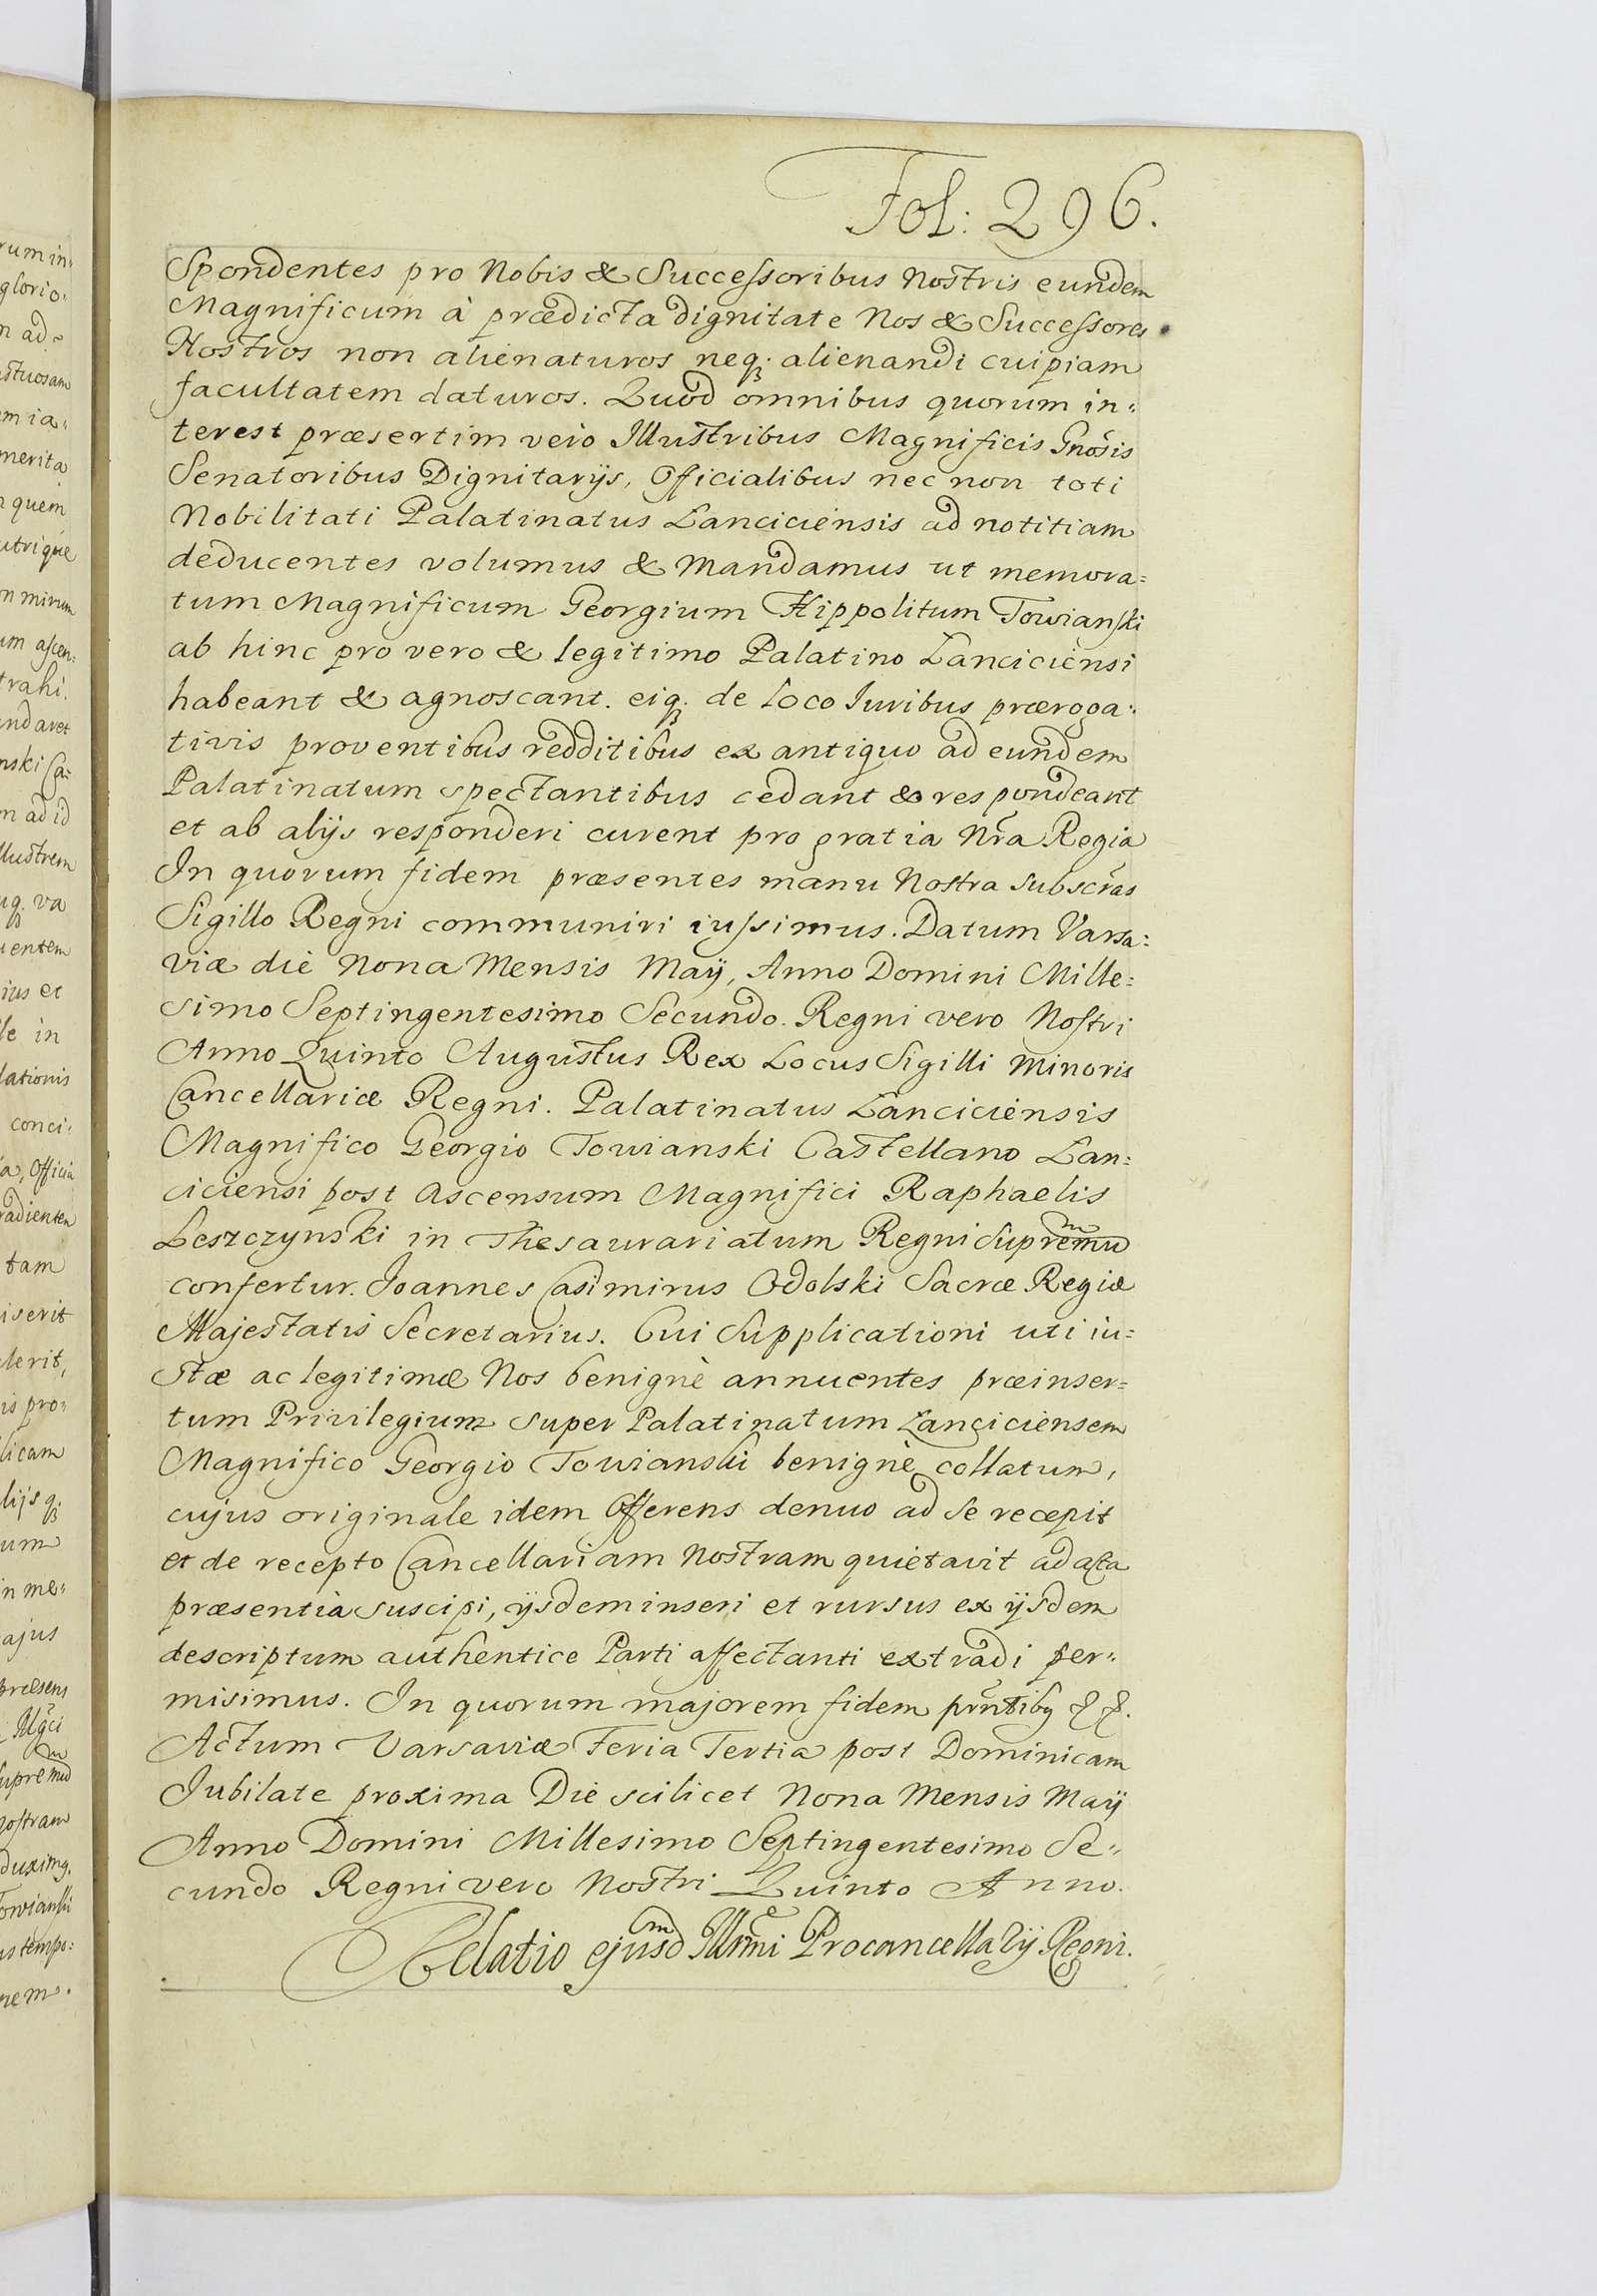 Fol: 296.
Spondentes pro Nobis & Successoribus Nostris eundem
Magnificum à prædicta dignitate Nos & Successores
Nostros non alienaturos neq; alienandi cuipiam
facultatem daturos. Quod omnibus quorum in:
terest præsertim vero Illustribus Magnificis Gnosis
Senatoribus Dignitarijs, Officialibus nec non toti
Nobilitati Palatinatus Lanciciensis ad notitiam
deducentes volumus & Mandamus ut memora:
tum Magnificum Georgium Hippolitum Towianski
ab hinc pro vero & legitimo Palatino Lanciciensi
habeant & agnoscant. eiq; de loco Iuribus præroga:
tivis proventibus redditibus ex antiquo ad eundem
Palatinatum spectantibus cedant & respondeant
et ab alijs responderi curent pro gratia Nra Regia
In quorum fidem præsentes manu Nostra subscras
Sigillo Regni communiri iussimus. Datum Varsa:
viæ die Nona Mensis Maÿ, Anno Domini Mille:
simo Septingentesimo Secundo. Regni vero Nostri
Anno Quinto Augustus Rex Locus Sigilli Minoris
Cancellariæ Regni. Palatinatus Lanciciensis
Magnifico Georgio Towianski Castellano Lan:
ciciensi post Ascensum Magnifici Raphaelis
Leszczynski in Thesaurariatum Regni Supremu
confertur. Joannes Casimirus Odolski Sacræ Regiæ
Majestatis Secretarius. Cui Supplicationi uti iu:
stæ ac legitimæ Nos benignè annuentes præinser:
tum Privilegium super Palatinatum Lanciciensem
Magnifico Georgio Towianski benignè collatum,
cujus originale idem Offerens denuo ad se recepit
et de recepto Cancellariam Nostram quietavit ad acta
præsentia suscipi, ijsdem inseri et rursus ex ijsdem
descriptum authentice Parti affectanti extradi per:
misimus. In quorum majorem fidem
Actum Varsaviæ Feria Tertia post Dominicam
Jubilate proxima Die scilicet Nona Mensis Maÿ
Anno Domini Millesimo Septingentesimo Se:
cundo Regni vero Nostri Quinto Anno.
Relatio ejusdm Illrmi Procancellarij Regni.